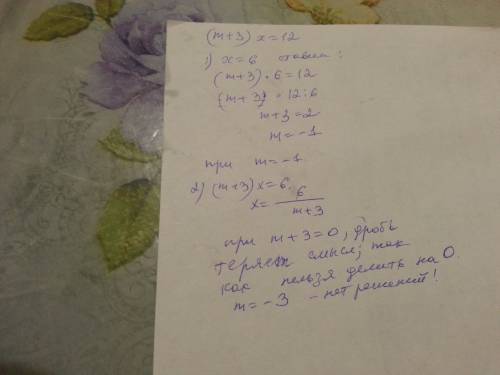 (m+3) x = 12
1) x = 6 ставим :
(m+3) · 6 = 12
(m+3) = 12 : 6
m+3 = 2
m = -1
при m = -1
2) (m+3) x = 6.
x = 6/(m+3)
при m+3=0, дробь
теряет смысл; так
как нельзя делить на 0.
m = -3 - нет решений!